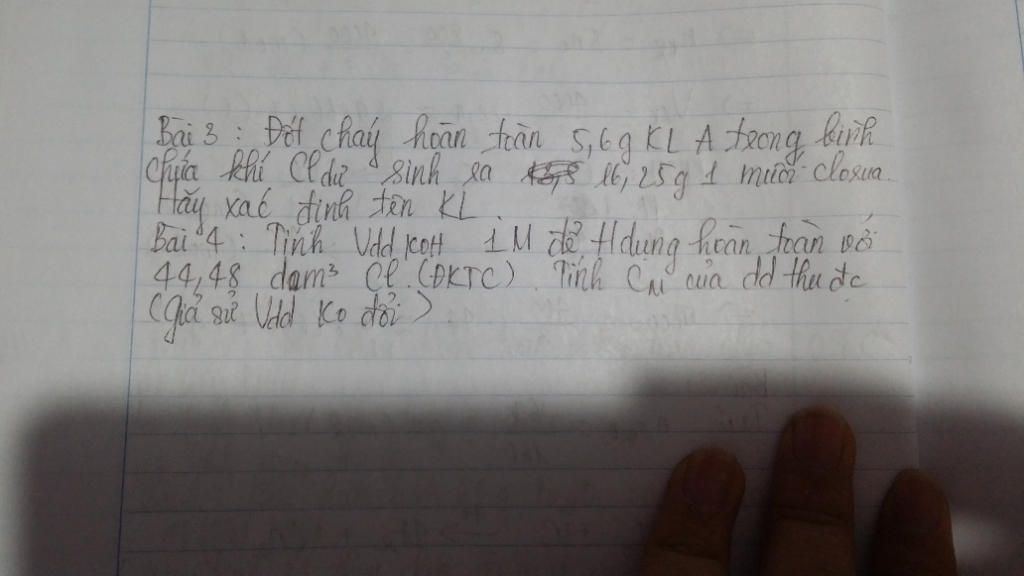 Bài 3 : Đốt cháy hoàn toàn 5,6g KL A trong bình
chứa khí Cl dư sinh ra 16,25g 1 muối clorua.
Hãy xác định tên KL.
Bài 4 : Tính Vdd KOH 1M để tdụng hoàn toàn với
44,48 dam³ Cl. (ĐKTC). Tính CM của dd thu đc
(Giả sử Vdd ko đổi)